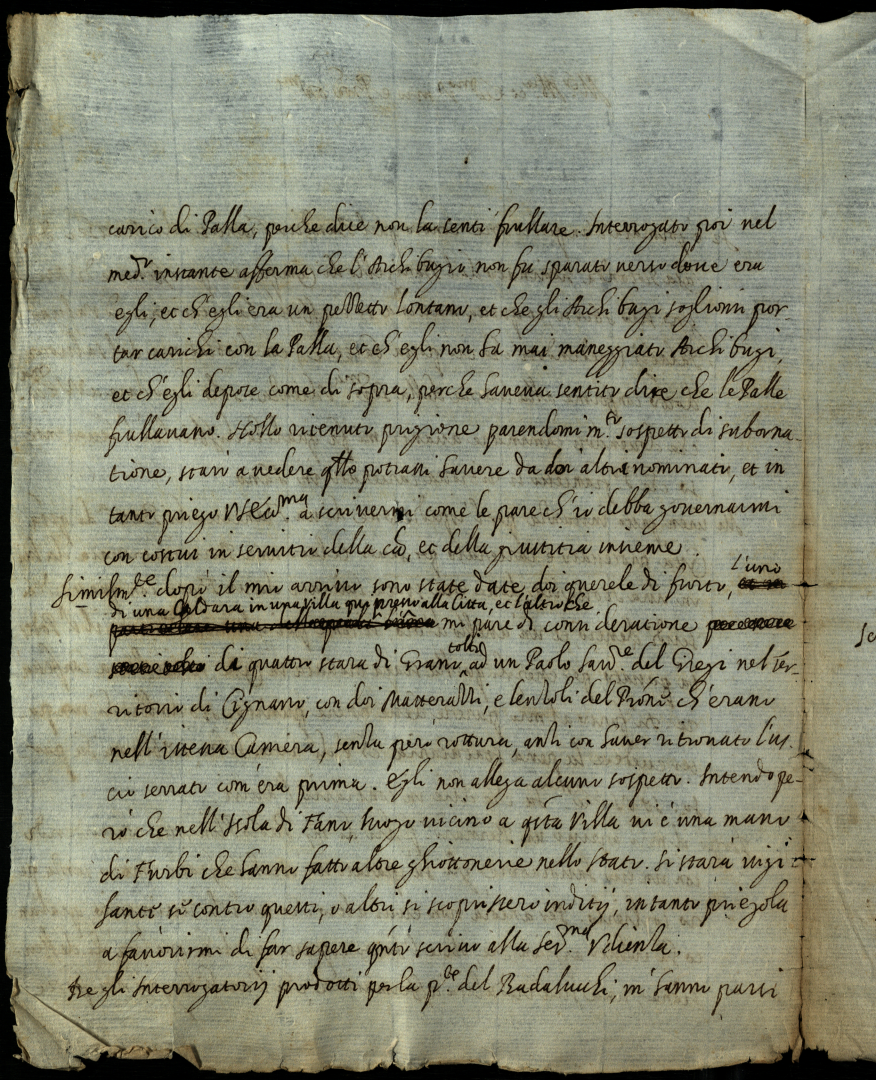 carico di Palla, perche dice non la sentì frullare. Interrogato poi nel
med.º instante afferma che l'Archibugio non fu sparato verso dove era
egli, et ch'egli era un pezzetto lontano, et che gli Archibugi sogliono por-
tar carichi con la Palla, et ch'egli non ha mai maneggiato Archibugi,
et ch'egli depose come di sopra, perche haveva sentito dire che le Palle
frullavano. Hollo ritenuto prigione parendomi m.to sospetto di suborna-
tione, starò a vedere qllo potrassi havere da doi altri nominati, et in
tanto priego VS Ecc.ma a scrivermi come le pare ch'io debba governarmi
con costui in servitio della and della giustitia insieme.
Similm.te dopò il mio arrivo sono state date doi querele di furto, l'uno
di una Caldara in una Villa qui presso alla Città, et l'altro che
mi pare di consideratione
di quattro stara di Grano tolti ad un Paolo del Gregi nel Ter-
ritorio di Cignano, con doi Matterazzi, e lenzoli del Prõne ch'erano
nell'istessa Camera, senza però rottura, anzi con haver ritrovato l'us-
cio serrato com'era prima. Egli non allega alcuno sospetto. Intendo pe-
rò che nell'Isola di Fano, luogo vicino a qsta Villa vi è una mano
di furbi che hanno fatto altre ghiottonerie nello stato. Si starà vigi-
lante se contro questi, o altri si scoprissero inditij, intanto priegola
a favorirmi di far sapere qnto scrivo alla Ser.ma Udienza.
Tre gli Interrogatorij prodotti per la p.te del Radaluchi, m'hanno parsi